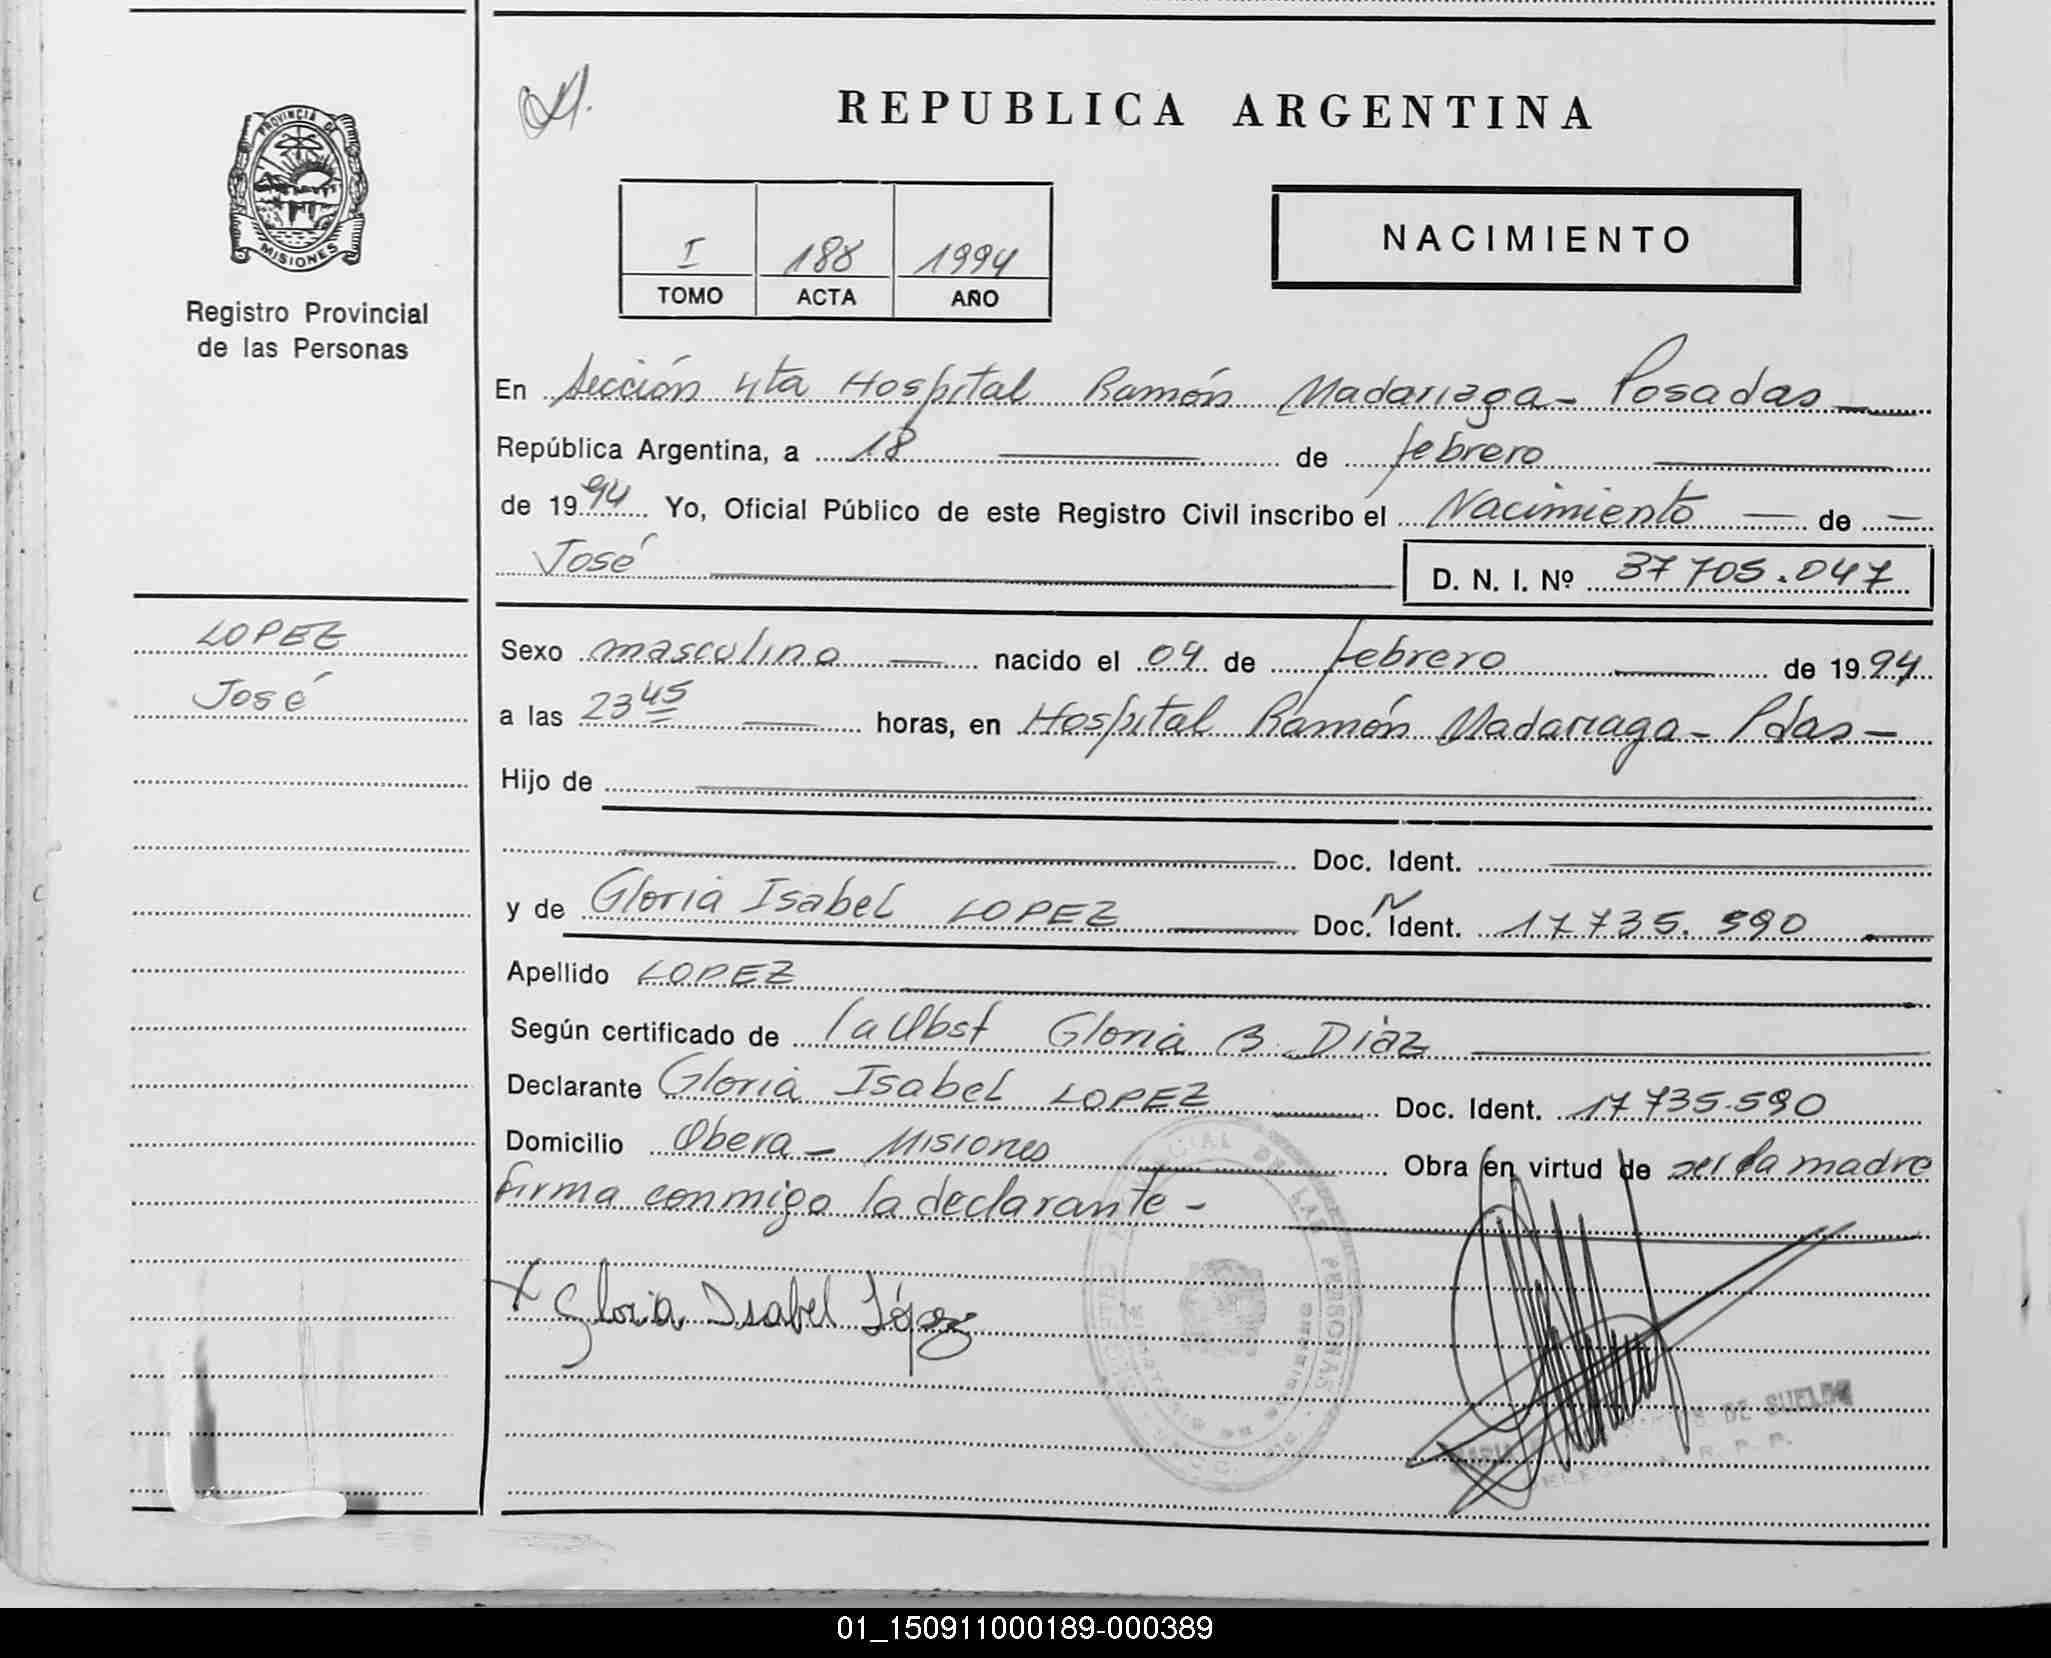 REPUBLICA ARGENTINA
PROVINCIA DE
MISIONES
Registro Provincial
de las Personas
I 188 1994
TOMO ACTA AÑO
NACIMIENTO
En Sección 4ta Hospital Ramón Madariaga - Posadas
República Argentina, a 18 de febrero
de 1994 Yo, Oficial Público de este Registro Civil inscribo el Nacimiento de
José D. N. I. Nº 37705.047
LOPEZ
José
Sexo masculino nacido el 04 de febrero de 1994
a las 23 45 horas, en Hospital Ramón Madariaga - Pdas -
Hijo de
Doc. Ident.
y de Gloria Isabel LOPEZ Doc. N Ident. 17735.590
Apellido LOPEZ
Según certificado de la Obst Gloria B. Diaz
Declarante Gloria Isabel LOPEZ Doc. Ident. 17735.590
Domicilio Obera - Misiones Obra en virtud de ser la madre
firma conmigo la declarante -
x Gloria Isabel López
DE LAS PERSONAS
DE SUELDO
R. P. P.
01_150911000189-000389